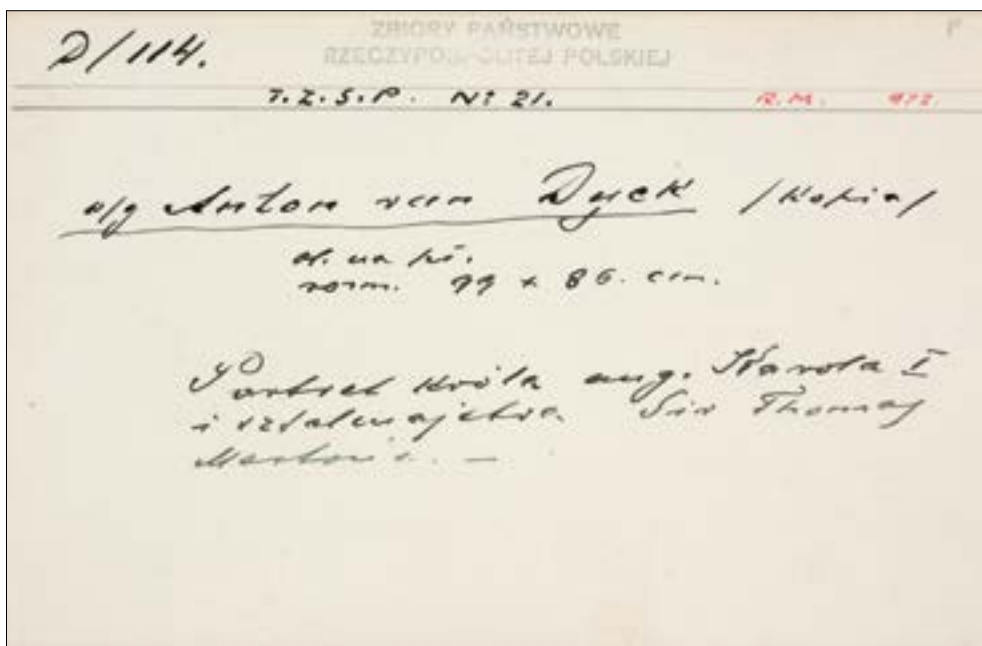 D/114.
ZBIORY PAŃSTWOWE
RZECZYPOSPOLITEJ POLSKIEJ
T.Z.S.P. Nº 21.
R.M. 972.
w/g Anton van Dyck /Kopia/
ol. na pł.
rozm. 99 x 86. cm.
Portret króla ang. Karola I
i sztalmajstra Sir Thomas